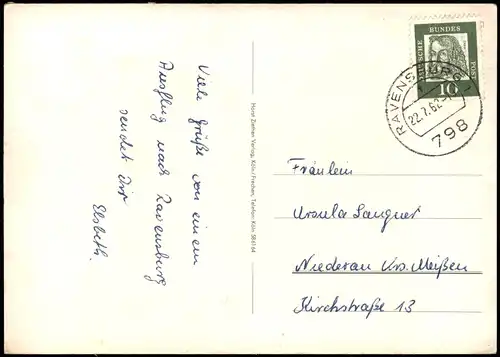 Viele Grüße von einem
Ausflug nach Ravensburg
sendet Dir
Elsbeth.
Horst Ziethen Verlag, Köln/Frechen, Telefon: Köln 58 61 64
DEUTSCHE BUNDES POST
10
RAVENSBURG 1
22.7.62
798
Fräulein
Ursula Langner
Niederau Krs. Meißen
Kirchstraße 13